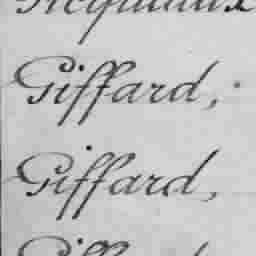 Giffard,
Giffard,